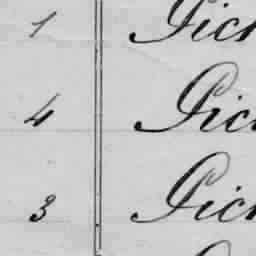 1 Pick
4 Pick
3 Pick